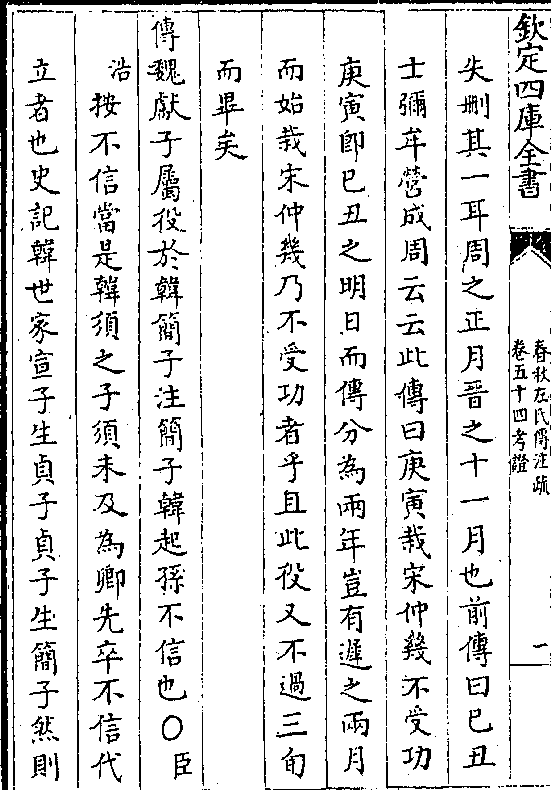 欽定四庫全書
春秋左氏傳注疏
卷五十四考證
一
失刪其一耳周之正月晉之十一月也前傳曰己丑
士彌牟營成周云云此傳曰庚寅栽宋仲幾不受功
庚寅即己丑之明日而傳分為兩年豈有遲之兩月
而始栽宋仲幾乃不受功者乎且此役又不過三旬
而畢矣
傳魏獻子屬役於韓簡子注簡子韓起孫不信也○臣
浩按不信當是韓須之子須未及為卿先卒不信代
立者也史記韓世家宣子生貞子貞子生簡子然則